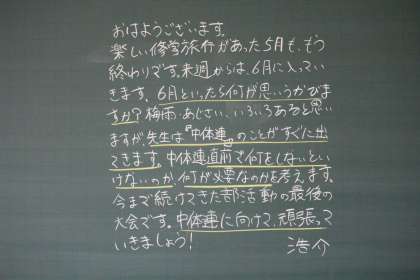 おはようございます。
楽しい修学旅行があった5月も、もう
終わりです。来週からは、6月に入ってい
きます。6月といったら何が思いうかびま
すか?梅雨・あじさい、いろいろあると思い
ますが、先生は『中体連』のことがすぐに出
てきます。中体連直前で何をしないとい
けないのか、何が必要なのかを考えます。
今まで続けてきた部活動の最後の
大会です。中体連に向けて、頑張って
いきましょう!
浩介